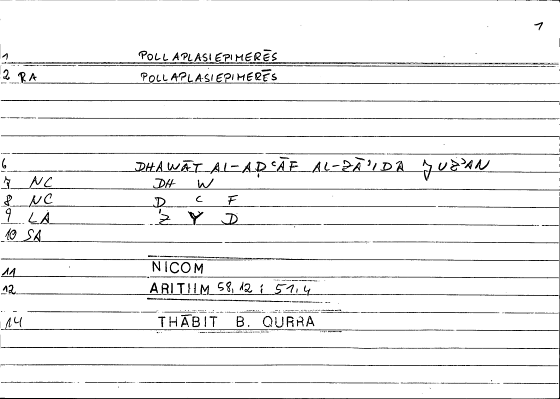 1
1 POLLAPLASIEPIMERĒS
2 RA POLLAPLASIEPIMERĒS
6 DHAWĀT AL-AḌʿĀF AL-ZĀʾIDA ǦUZʾAN
7 NC DH W
8 NC D ʿ F
9 LA Z Y D
10 SA
11 NICOM
12 ARITIIM 58,12 ; 51,4
14 THĀBIT B. QURRA